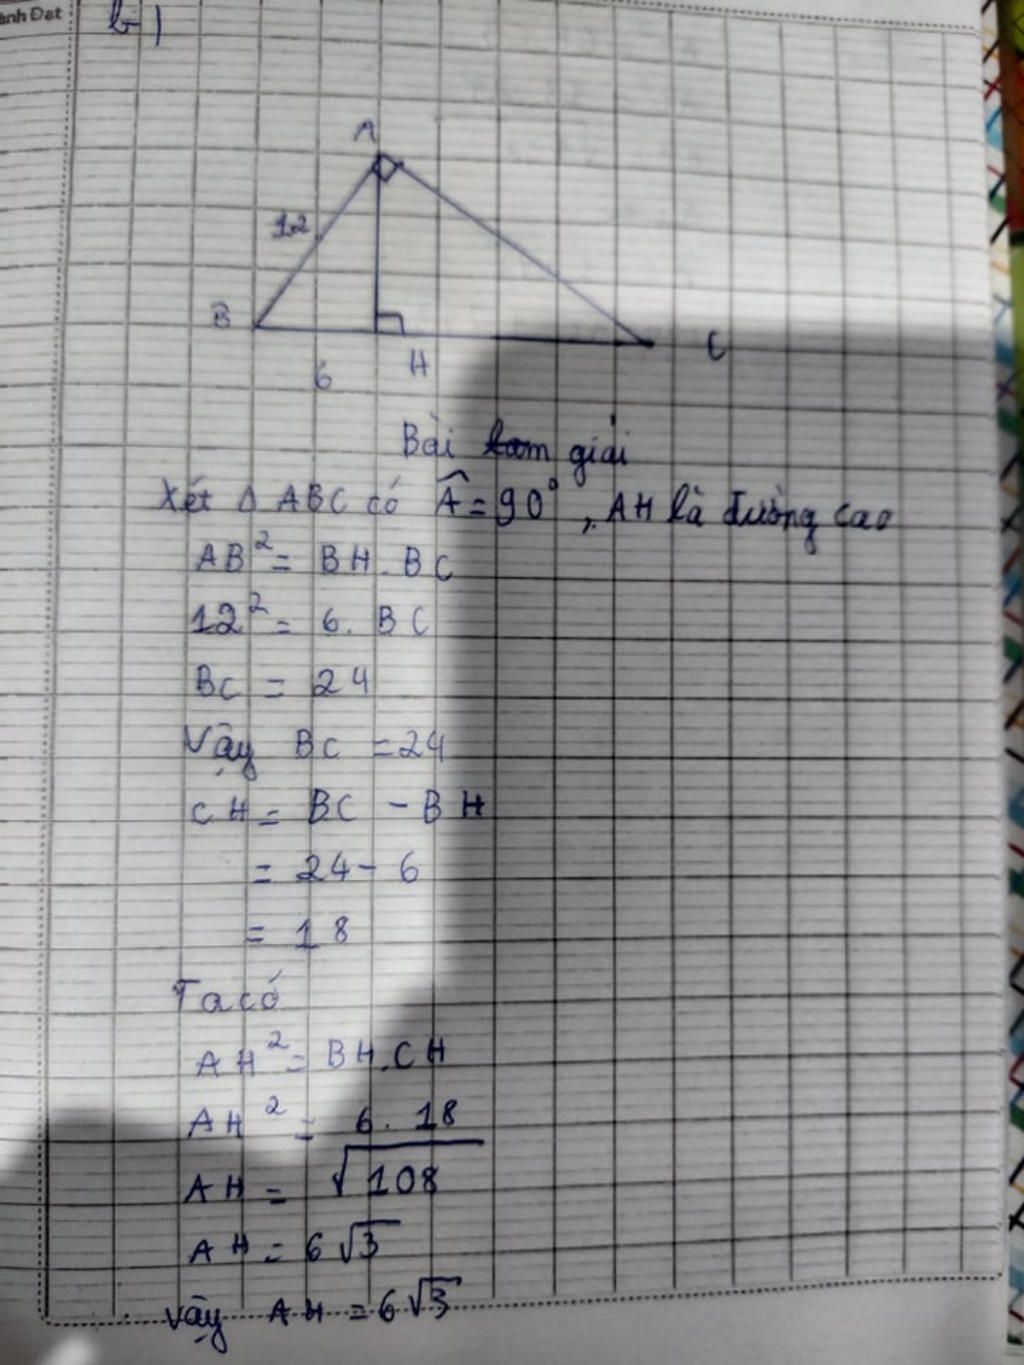 ành Đạt
b)
A
12
B
C
6
H
Bài giải
Xét Δ ABC có Â = 90°, AH là đường cao
AB² = BH . BC
12² = 6 . BC
BC = 24
Vậy BC = 24
CH = BC - BH
= 24 - 6
= 18
Ta có
AH² = BH . CH
AH² = 6 . 18
AH = √108
AH = 6√3
Vậy AH = 6√3